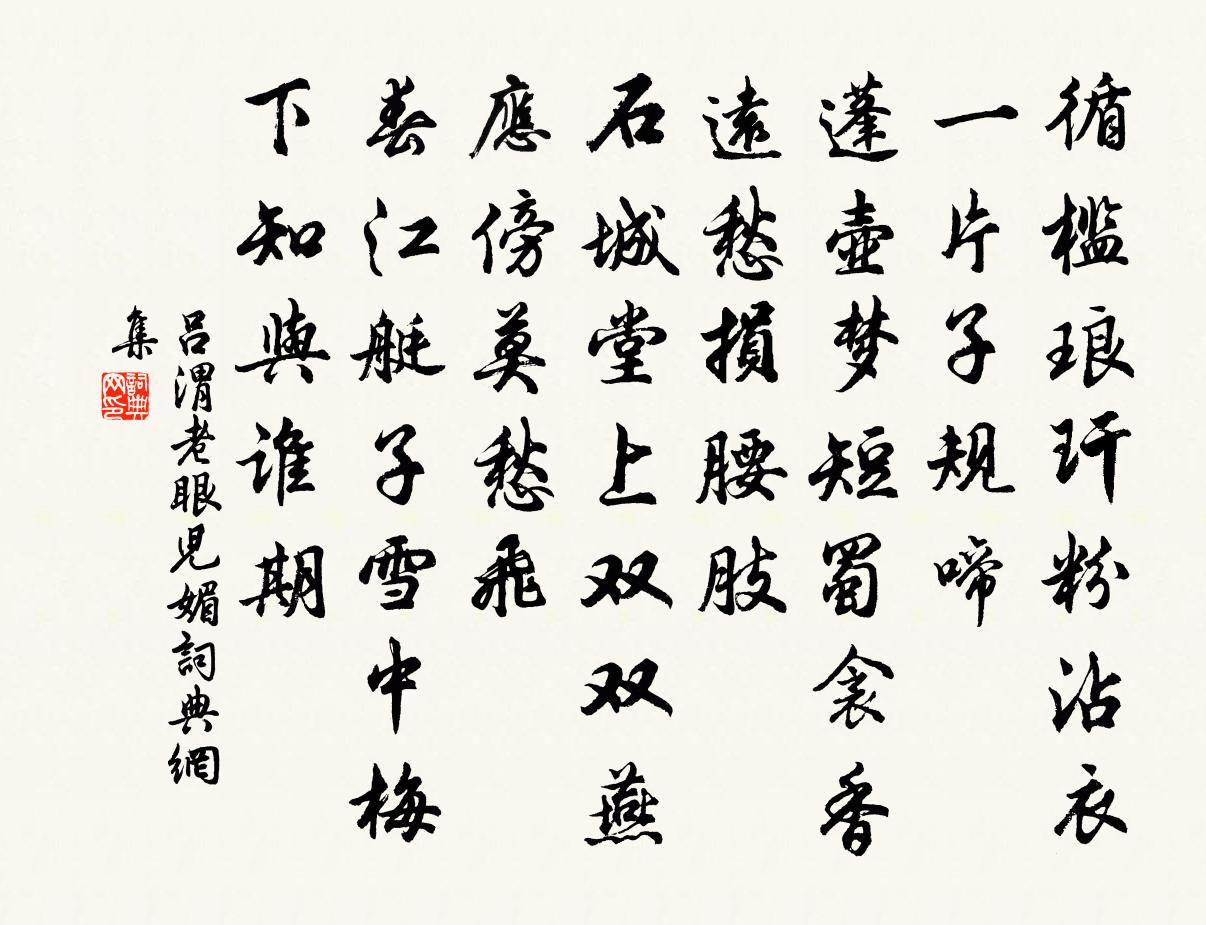 循槛琅玕粉沾衣
一片子规啼
蓬壶梦短蜀衾香
遠愁損腰肢
石城堂上双双燕
應傍莫愁飛
春江艇子雪中梅
下知與谁期
吕渭老眼児媚詞典網
集
詞典
网印